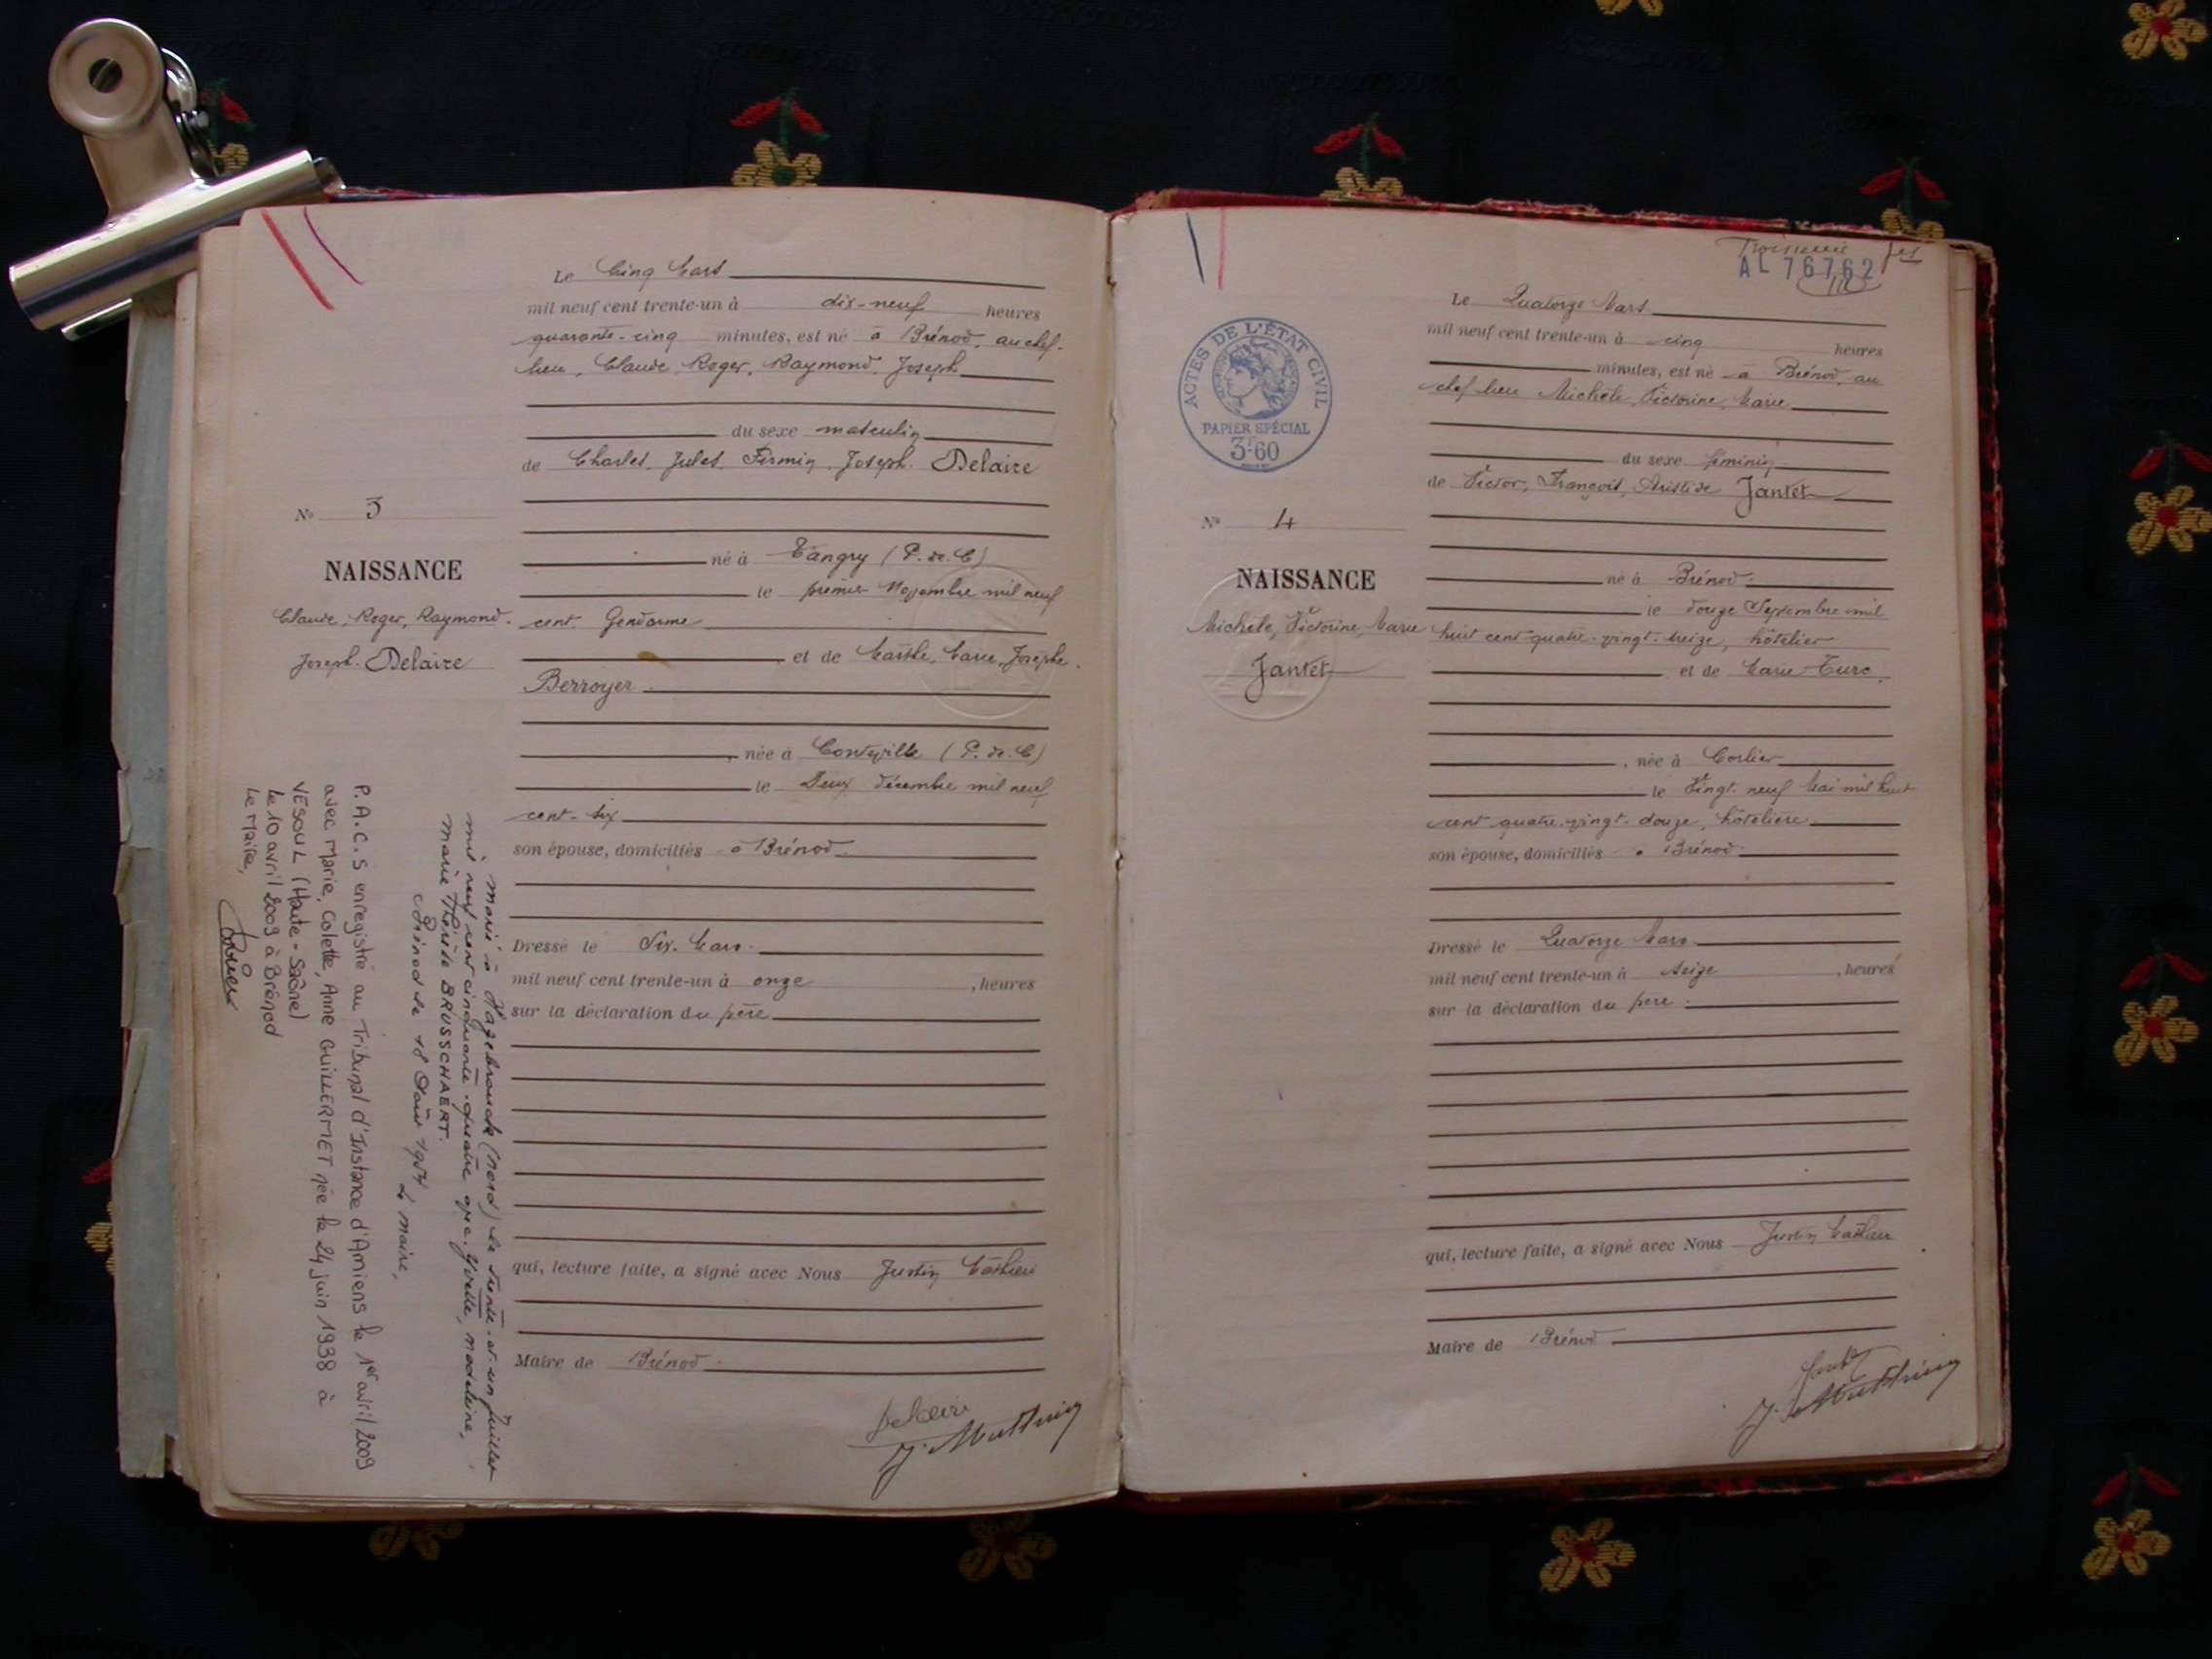 Le Cinq Mars
mil neuf cent trente-un à dix-neuf heures
quarante-cinq minutes, est né à Brénod, au chef-
lieu, Claude, Roger, Raymond, Joseph
du sexe masculin
de Charles, Jules, Firmin, Joseph. Delaire
né à Tangry (P. de. C)
le premier Novembre mil neuf
cent. Gendarme
et de Marthe, Marie, Josèphe.
Berroyer
, née à Conteville (P. de. C)
le Deux décembre mil neuf
cent-six
son épouse, domiciliés à Brénod
Dressé le Six. Mars.
mil neuf cent trente-un à onze , heures
sur la déclaration du père
qui, lecture faite, a signé avec Nous Justin Mathieu
Maire de Brénod
Delaire
J. Mathieu
N° 3
NAISSANCE
Claude, Roger, Raymond.
Joseph. Delaire
marié à Hazebrouck (nord) le trente-et-un juillet
mil neuf cent cinquante-quatre avec Yvette, Madeleine,
marie Thérèse BRUSSCHAERT.
Brénod le 18 Août 1954
Le maire,
P.A.C.S enregistré au Tribunal d'Instance d'Amiens le 1er avril 2009
avec Marie, Colette, Anne GUILLERMET née le 24 juin 1938 à
VESOUL (Haute-Saône)
le 10 avril 2009 à Brénod
Le Maire,
Troisième
AL 76762
ACTES DE L'ÉTAT CIVIL
PAPIER SPÉCIAL
3F60
Le Quatorze Mars
mil neuf cent trente-un à cinq heures
minutes, est né à Brénod, au
chef lieu Michèle, Victorine, Marie
du sexe féminin
de Victor, François, Aristide Jantet
né à Brénod
le douze Septembre mil
huit cent quatre-vingt-treize, hôtelier
et de Marie Turc,
, née à Corlier
le Vingt-neuf Mai mil huit
cent quatre-vingt-douze, hôtelière
son épouse, domiciliés à Brénod
Dressé le Quatorze Mars
mil neuf cent trente-un à seize , heures
sur la déclaration du père
qui, lecture faite, a signé avec Nous Justin Mathieu
Maire de Brénod
Jantet
J. Mathieu
N° 4
NAISSANCE
Michèle, Victorine, Marie
Jantet